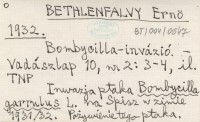 BETHLENFALVY Ernö
1932.
BT/004/0047
Bombycilla-invázió. –
Vadászlap 10, nr 2: 3-4, il.
TNP
Inwazja ptaka Bombycilla
garrulus L. na Spiszu w zimie
1931/32. Pożywienie tego ptaka.